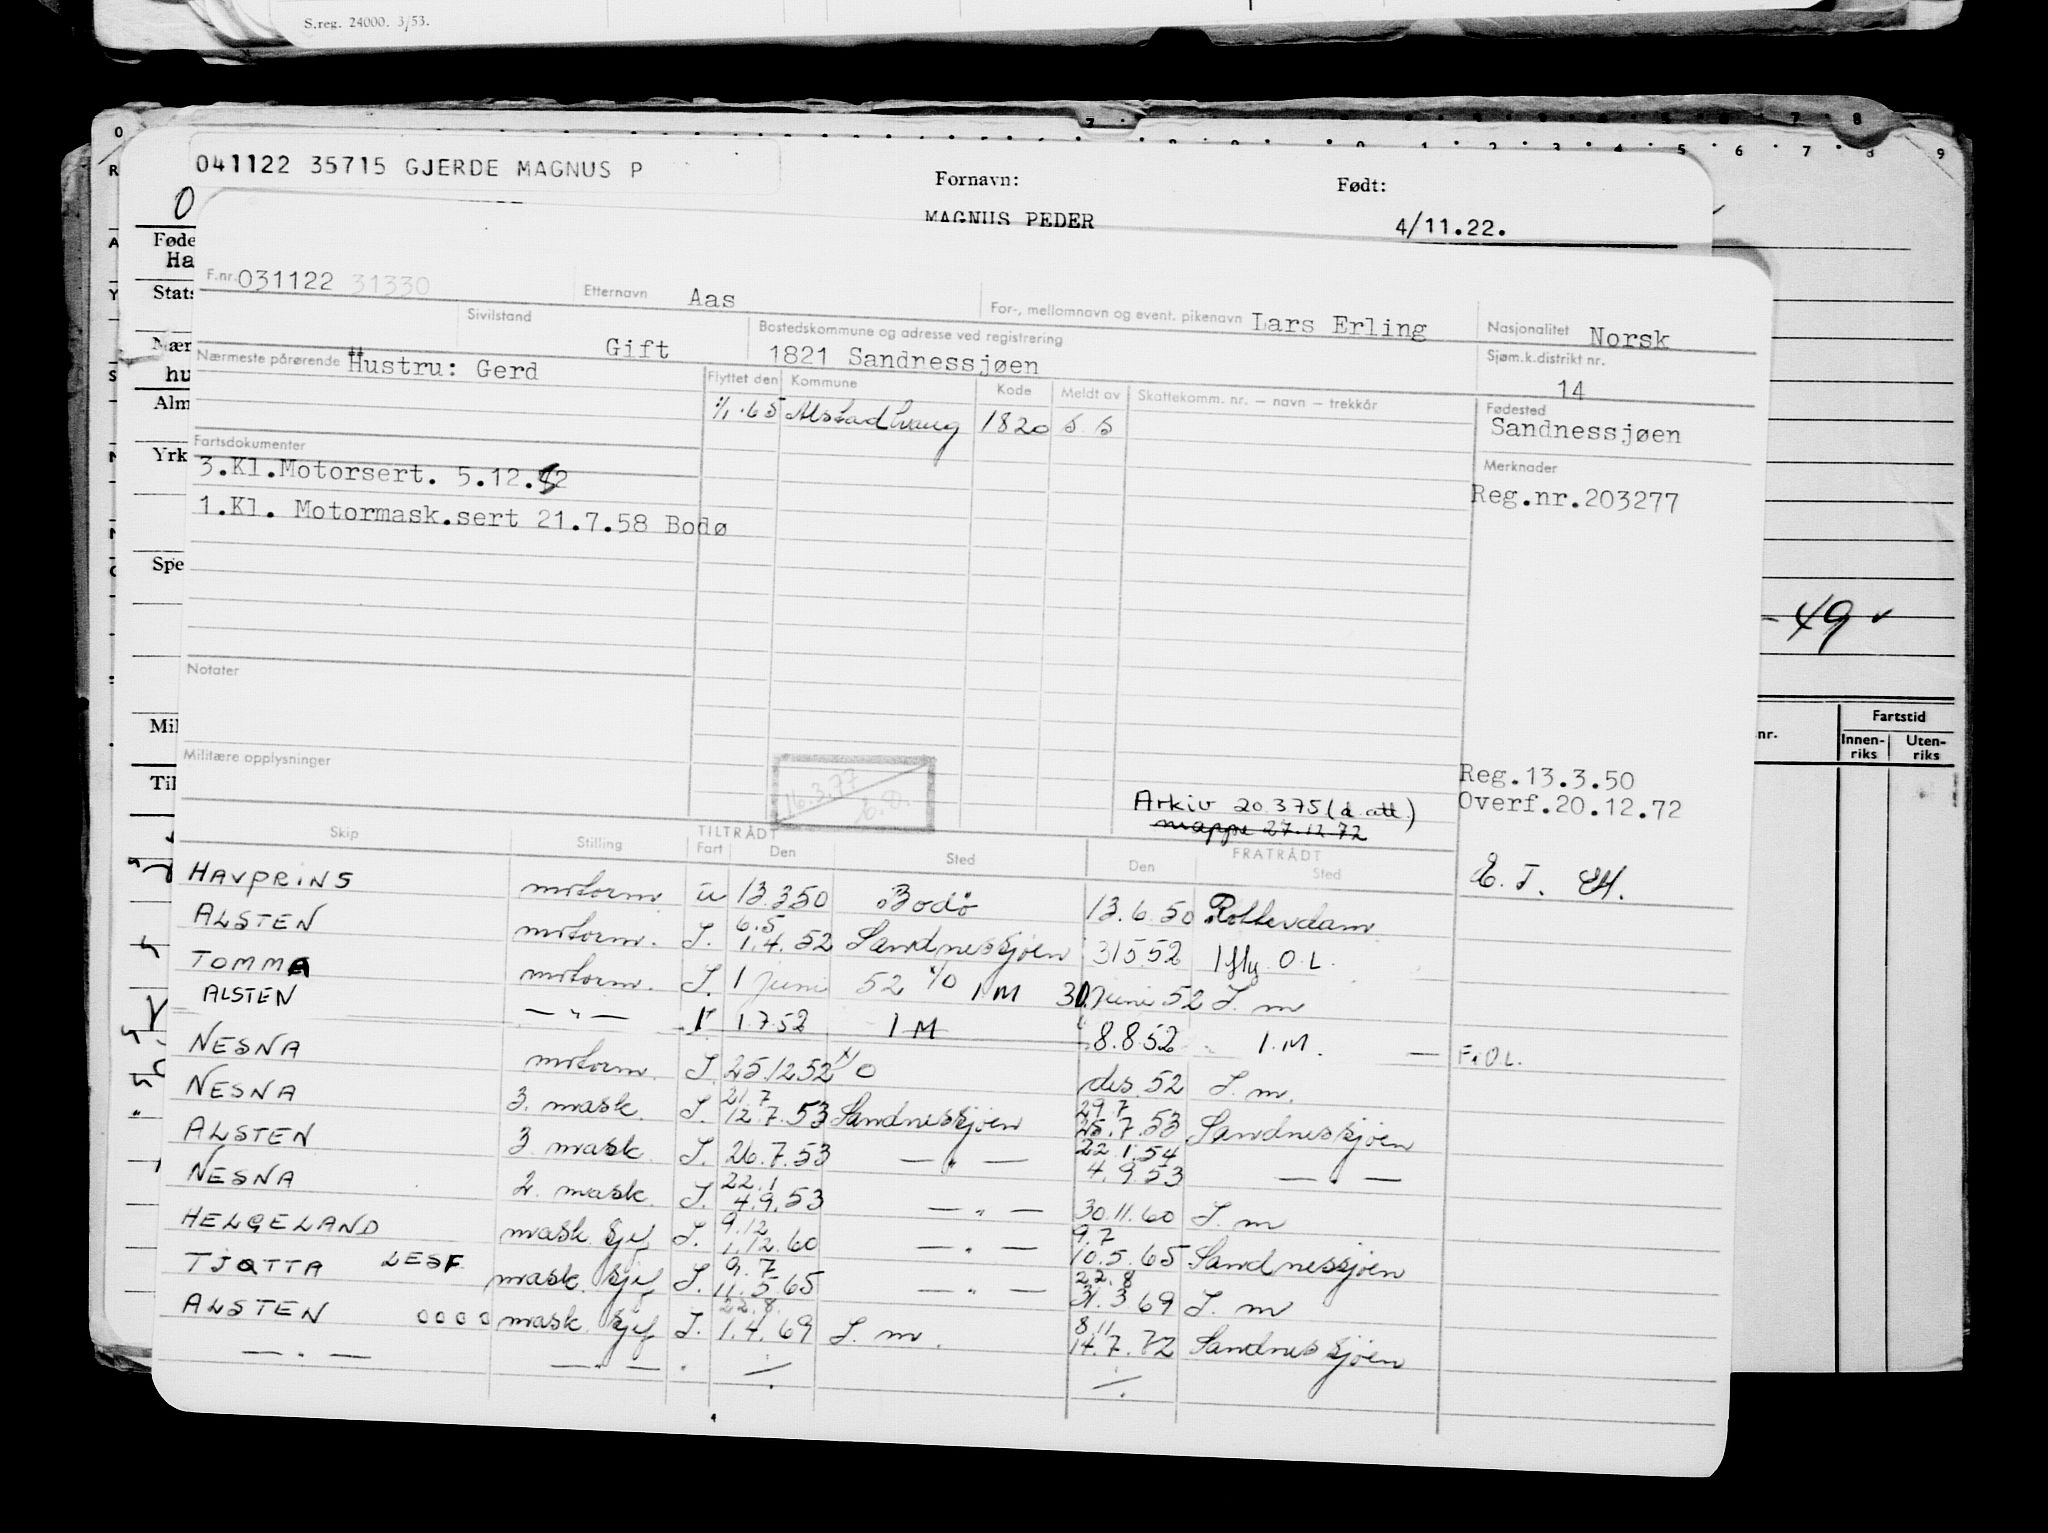 S.reg. 24000. 3/53.
041122 35715 GJERDE MAGNUS P
Fornavn: Født:
MAGNUS PEDER 4/11.22.
Føde
Ha
Stats
Nær
hu
Alm
Yrk
Spe
Mil
Til
F.nr. 031122 31330 Etternavn Aas For-, mellomnavn og event. pikenavn Lars Erling Nasjonalitet Norsk
Sivilstand Gift Bostedskommune og adresse ved registrering 1821 Sandnessjøen Sjøm.k.distrikt nr. 14
Nærmeste pårørende Hustru: Gerd
Flyttet den Kommune Kode Meldt av Skattekomm. nr. — navn — trekkår Fødested
1/1.65 Alstadhaug 1820 S.S Sandnessjøen
Fartsdokumenter Merknader
3.Kl.Motorsert. 5.12.52 Reg.nr.203277
1.Kl. Motormask.sert 21.7.58 Bodø
- 49
Notater
nr. Fartstid
Innen-riks Uten-riks
Militære opplysninger
16.3.77
Reg.13.3.50
Overf.20.12.72
Arkiv 20375 (d. att.)
mappe 27.12.72
Skip Stilling TILTRÅDT FRATRÅDT
Fart Den Sted Den Sted
E. T. EH.
HAVPRINS motorm u 13.3.50 Bodø 13.6.50 Rotterdam
ALSTEN motorm. I. 6.5 1.4.52 Sandnessjøen 31552 1 fly O.L.
TOMMA motorm. I. 1 Juni 52 1/0 1 M 30. Juni 52 I. m
ALSTEN — " — I 1.7.52 1 M 8.8.52 1.M. — F.OL.
NESNA motorm. I. 25.12.52 1/0 des. 52 I. m.
NESNA 3. mask. I. 21.7 12.7.53 Sandnessjøen 29.7 25.7.53 Sandnessjøen
ALSTEN 3 mask. I. 26.7.53 — " — 22.1.54 4.9.53 — " —
NESNA 2. mask. I. 22.1 4.9.53 — " — 30.11.60 I. m
HELGELAND mask. sjef I. 9.12 1.12.60 — " — 9.7 10.5.65 Sandnessjøen
TJØTTA LESF mask. sjef I. 9.7 11.5.65 — " — 22.8 31.3 69 I. m
ALSTEN 0000 mask. sjef I. 22.8. 1.4.69 I. m. 8.11 14.7.72 Sandnessjøen
— " — — " — " ⁒ ⁒